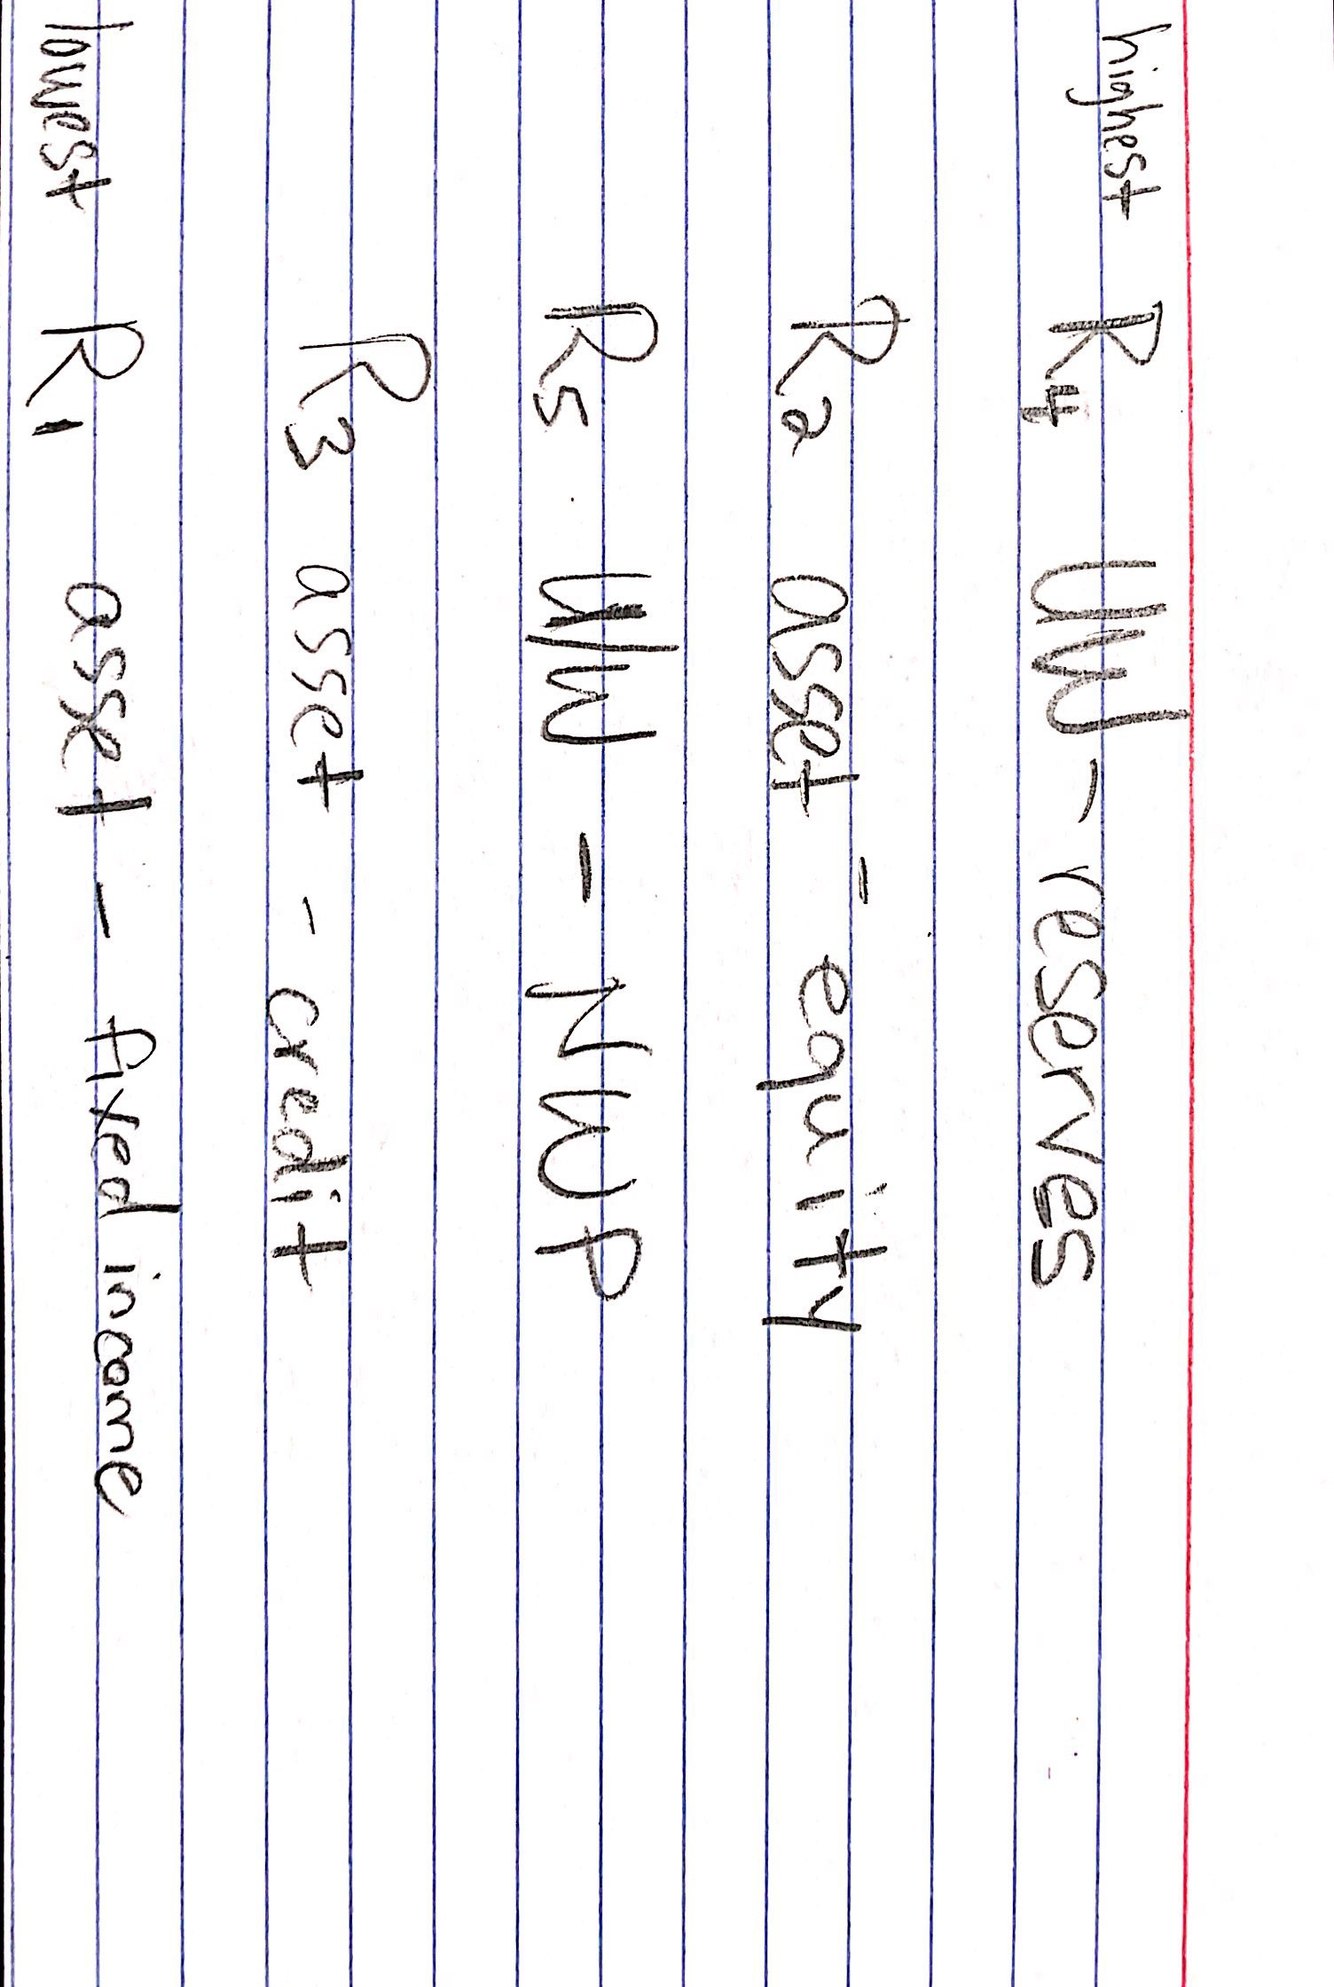 highest R4 UW - reserves
R2 asset - equity
R5 UW - NWP
R3 asset - credit
lowest R1 asset - fixed income